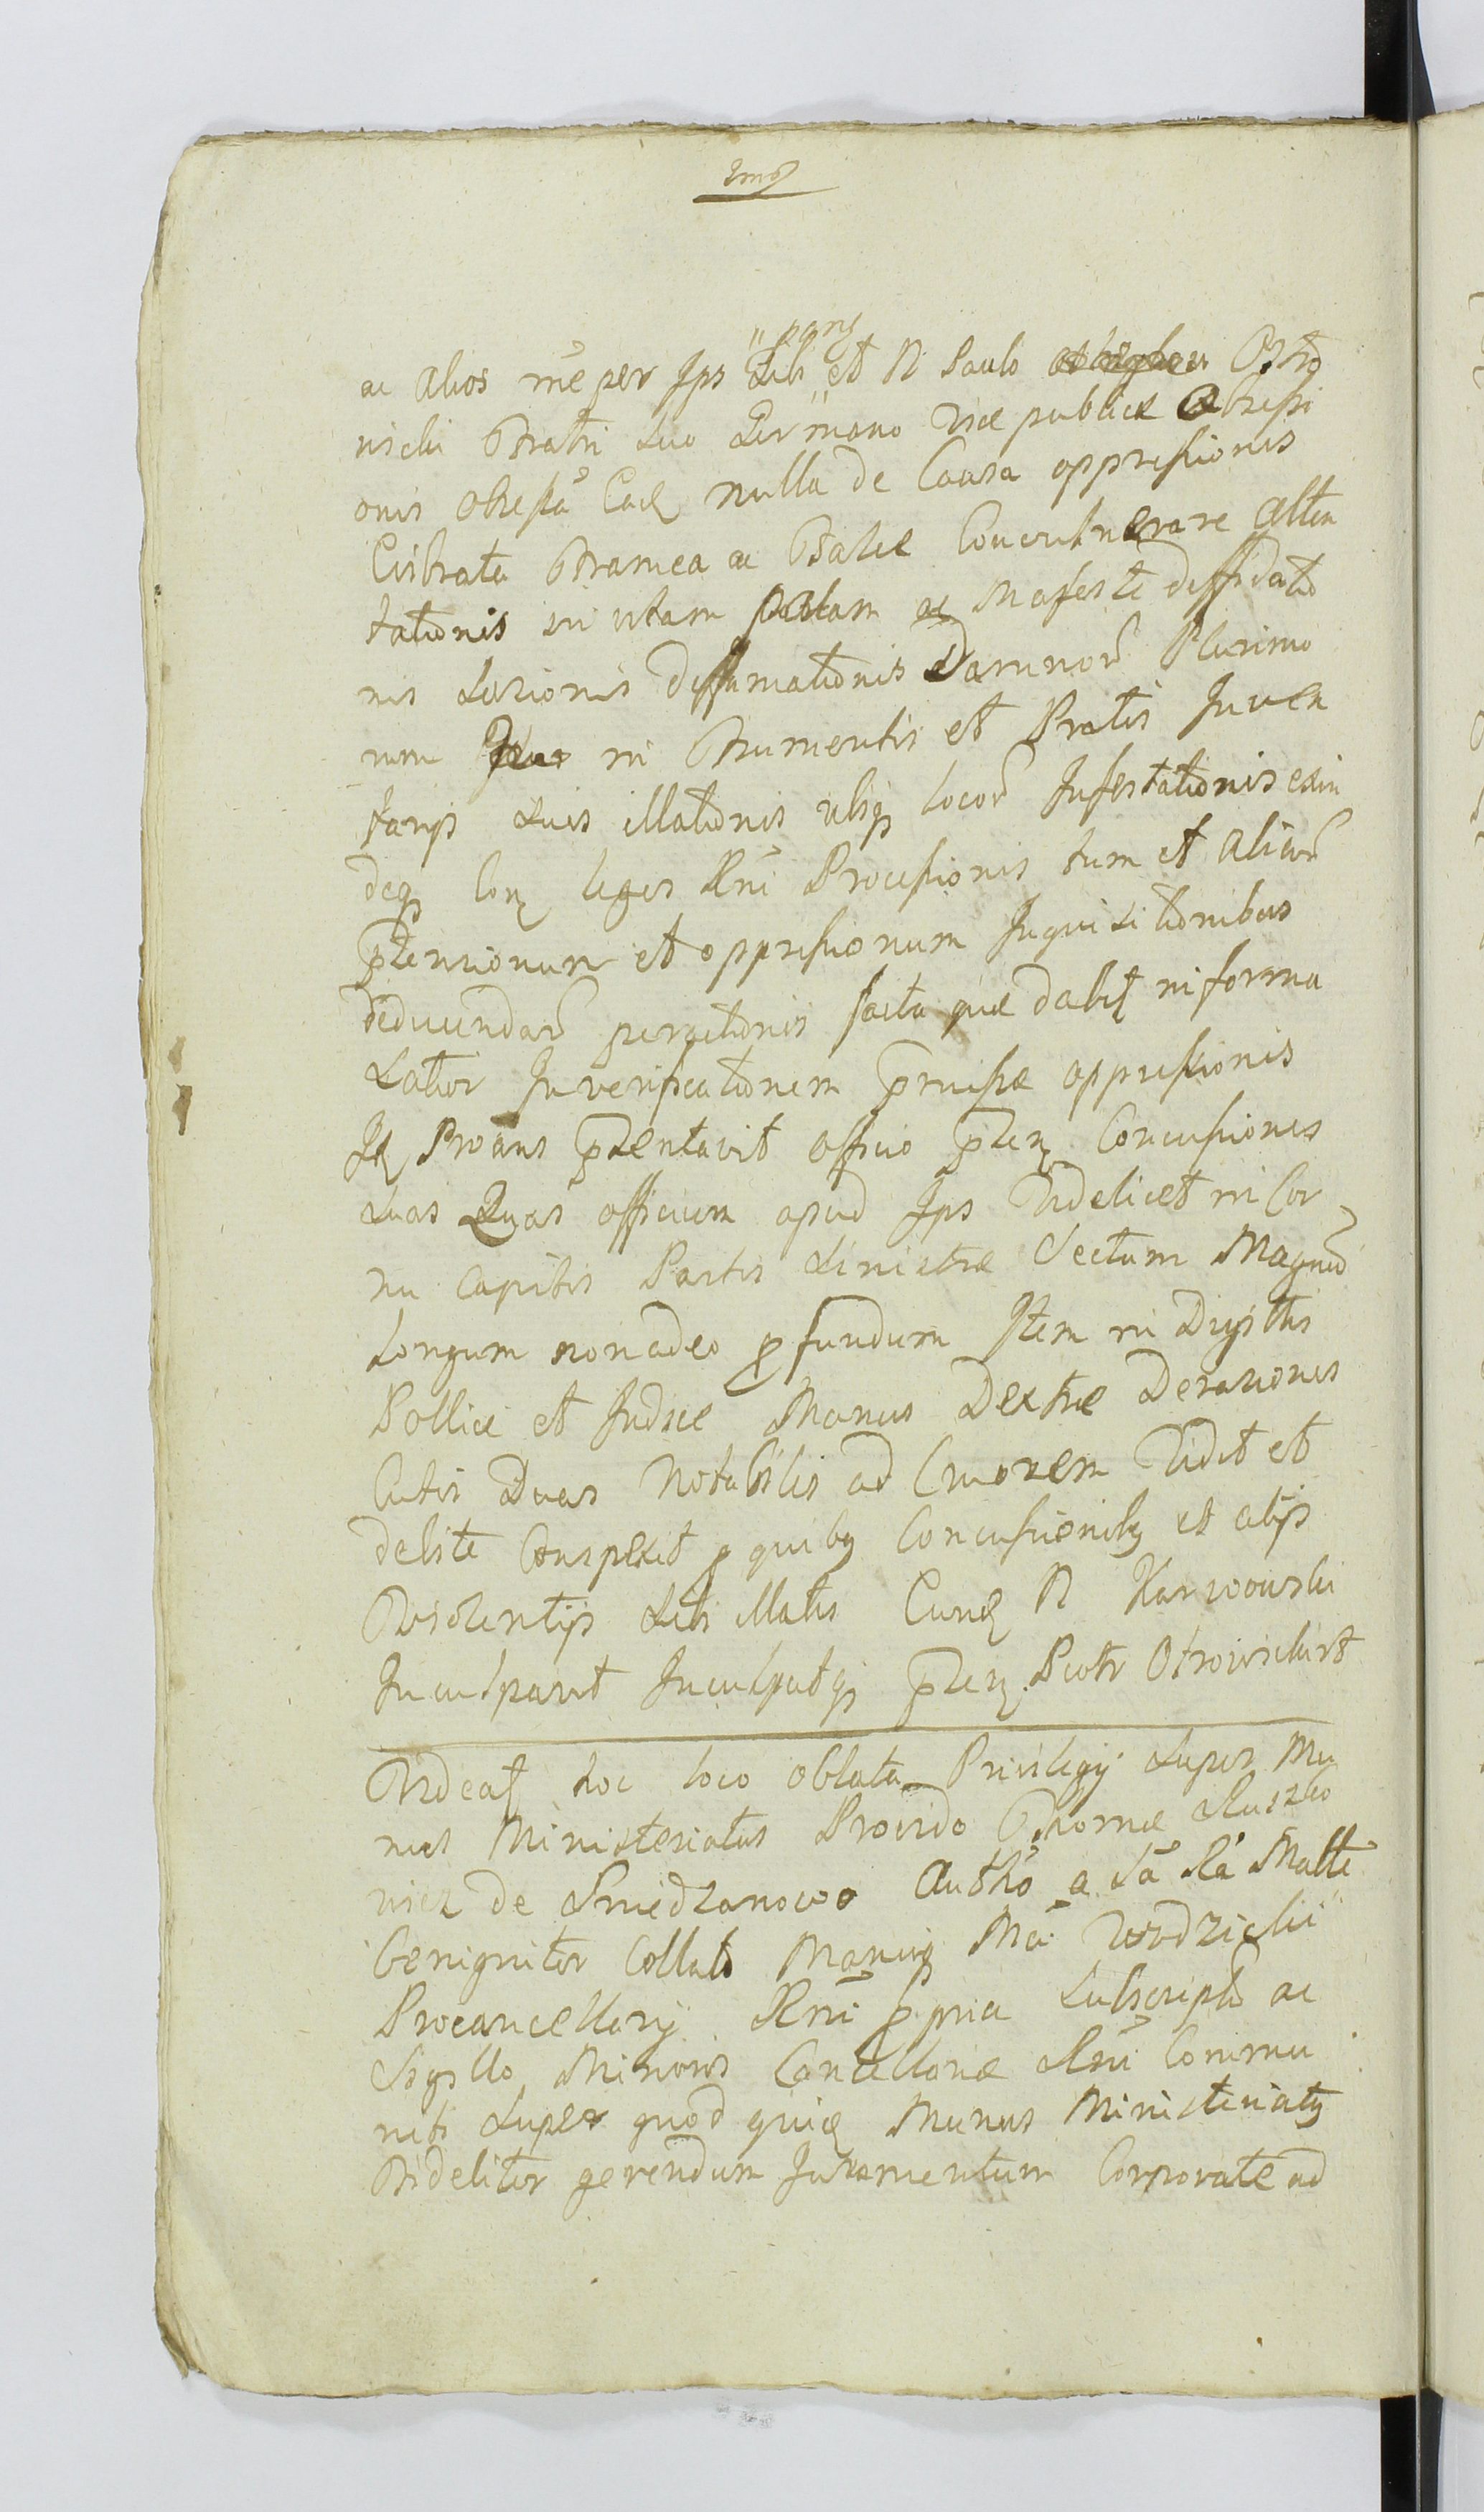 ac alios me per Ips Sibi pans et N Paulo Ostro
wicki Fratri suo Germano viae publicae Obsessi
onis obsessa Eaq nulla de Causa oppressionis
Evibrata Framea ac Balie Convulnerare atten
tationis in vitam palam ac Mafeste diffidatio
nis Laesionis diffamationis Damnor Plurimo
rum in Frumentis et Pratis Inven
tarijs suis illationis ubiq locor Infestationis exin
deq Con leges Rni Processionis tum et aliar
ptensionum et oppressionum Inquisitionibus
deducendar peractionis facta quae dabit informa
Latior In verificationem pmissae oppressionis
Iq Proans pzentavit officio pzen Concussiones
suas Quas officium apud Ips Videlicet in Cor
nu Capitis Partis sinistrae Sectum Magnu
Longum non adeo pfundum Item in Digitis
Pollice et Indice Manus Dextrae Derasiones
Cutis Duas Notabilis ad Cruorem Vidit et
debite Conspexit p quibq Concussionibq et alijs
Violentijs sibi illatis Eunq N Karwowski
Inculpavit Inculpatqz pzen Piotr Ostrowickirt
Videat hoc loco oblata Privilegij super Mu
nus Ministeriatus Provido Thomae Ruszko
wicz de Sniedzanowo Autho a Sa Ra Matte
benigniter Collato Manuq Ma Wodzicki
Procancellarij Rni ppria Subscripto ac
Sigyllo Minoris Cancellariae Rni Commu
niti super quod quiq Munus Ministeriatq
Fideliter gerendum Juramentum Corporate ad